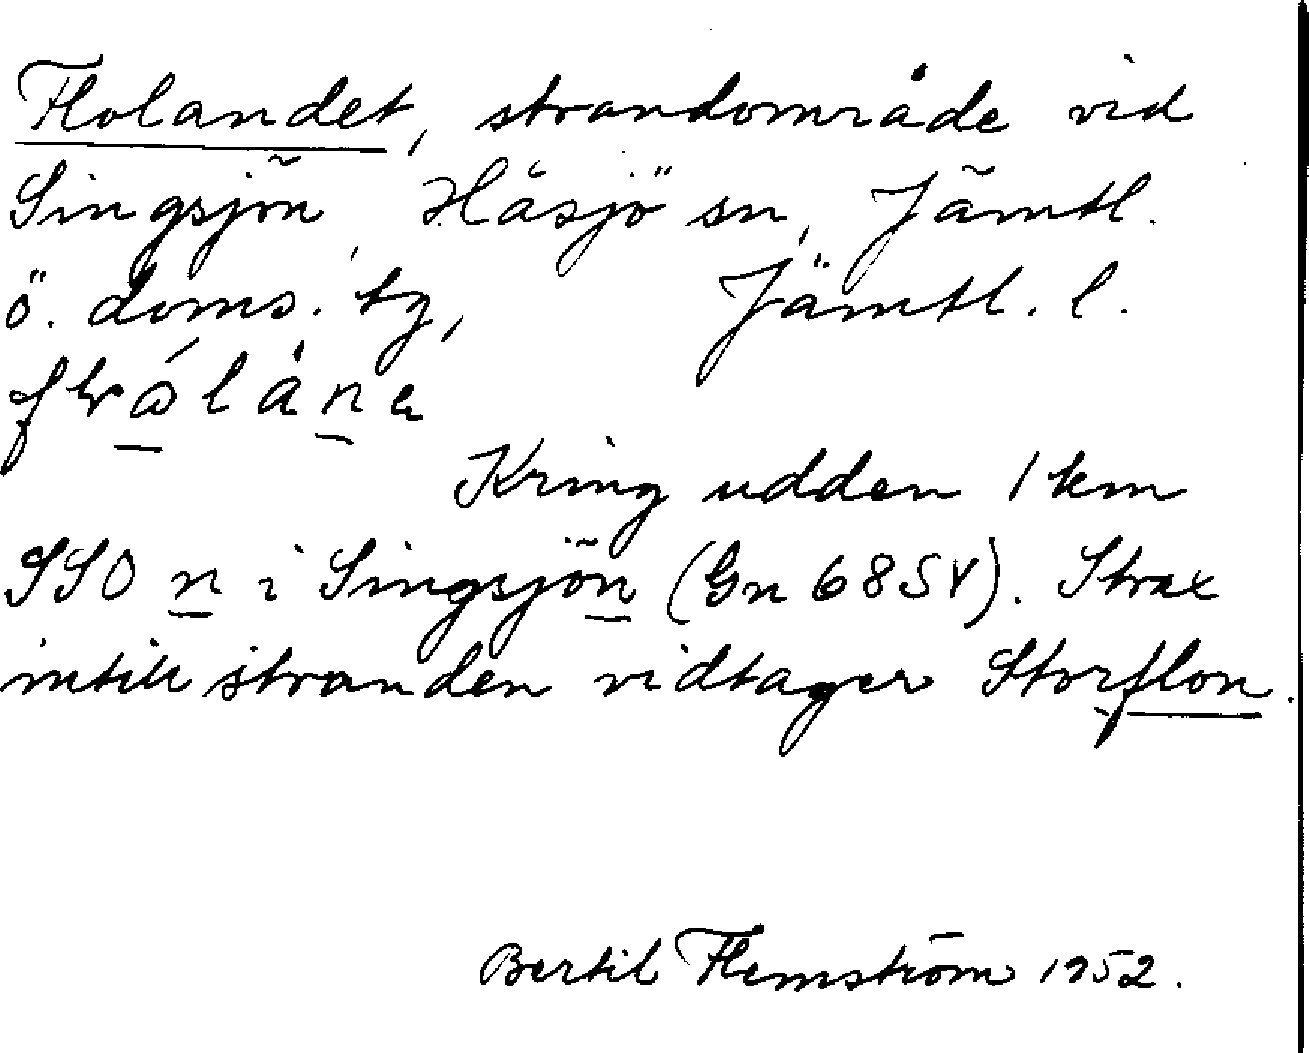 Flolandet, strandområde vid
Singsjön, Håsjö sn, Jämtl.
ö. doms. tg, Jämtl. l.
Kring udden 1 km
SSO n i Singsjön (Gn 68SV). Strax
intill stranden vidtager Storflon.
Bertil Flemström 1952.